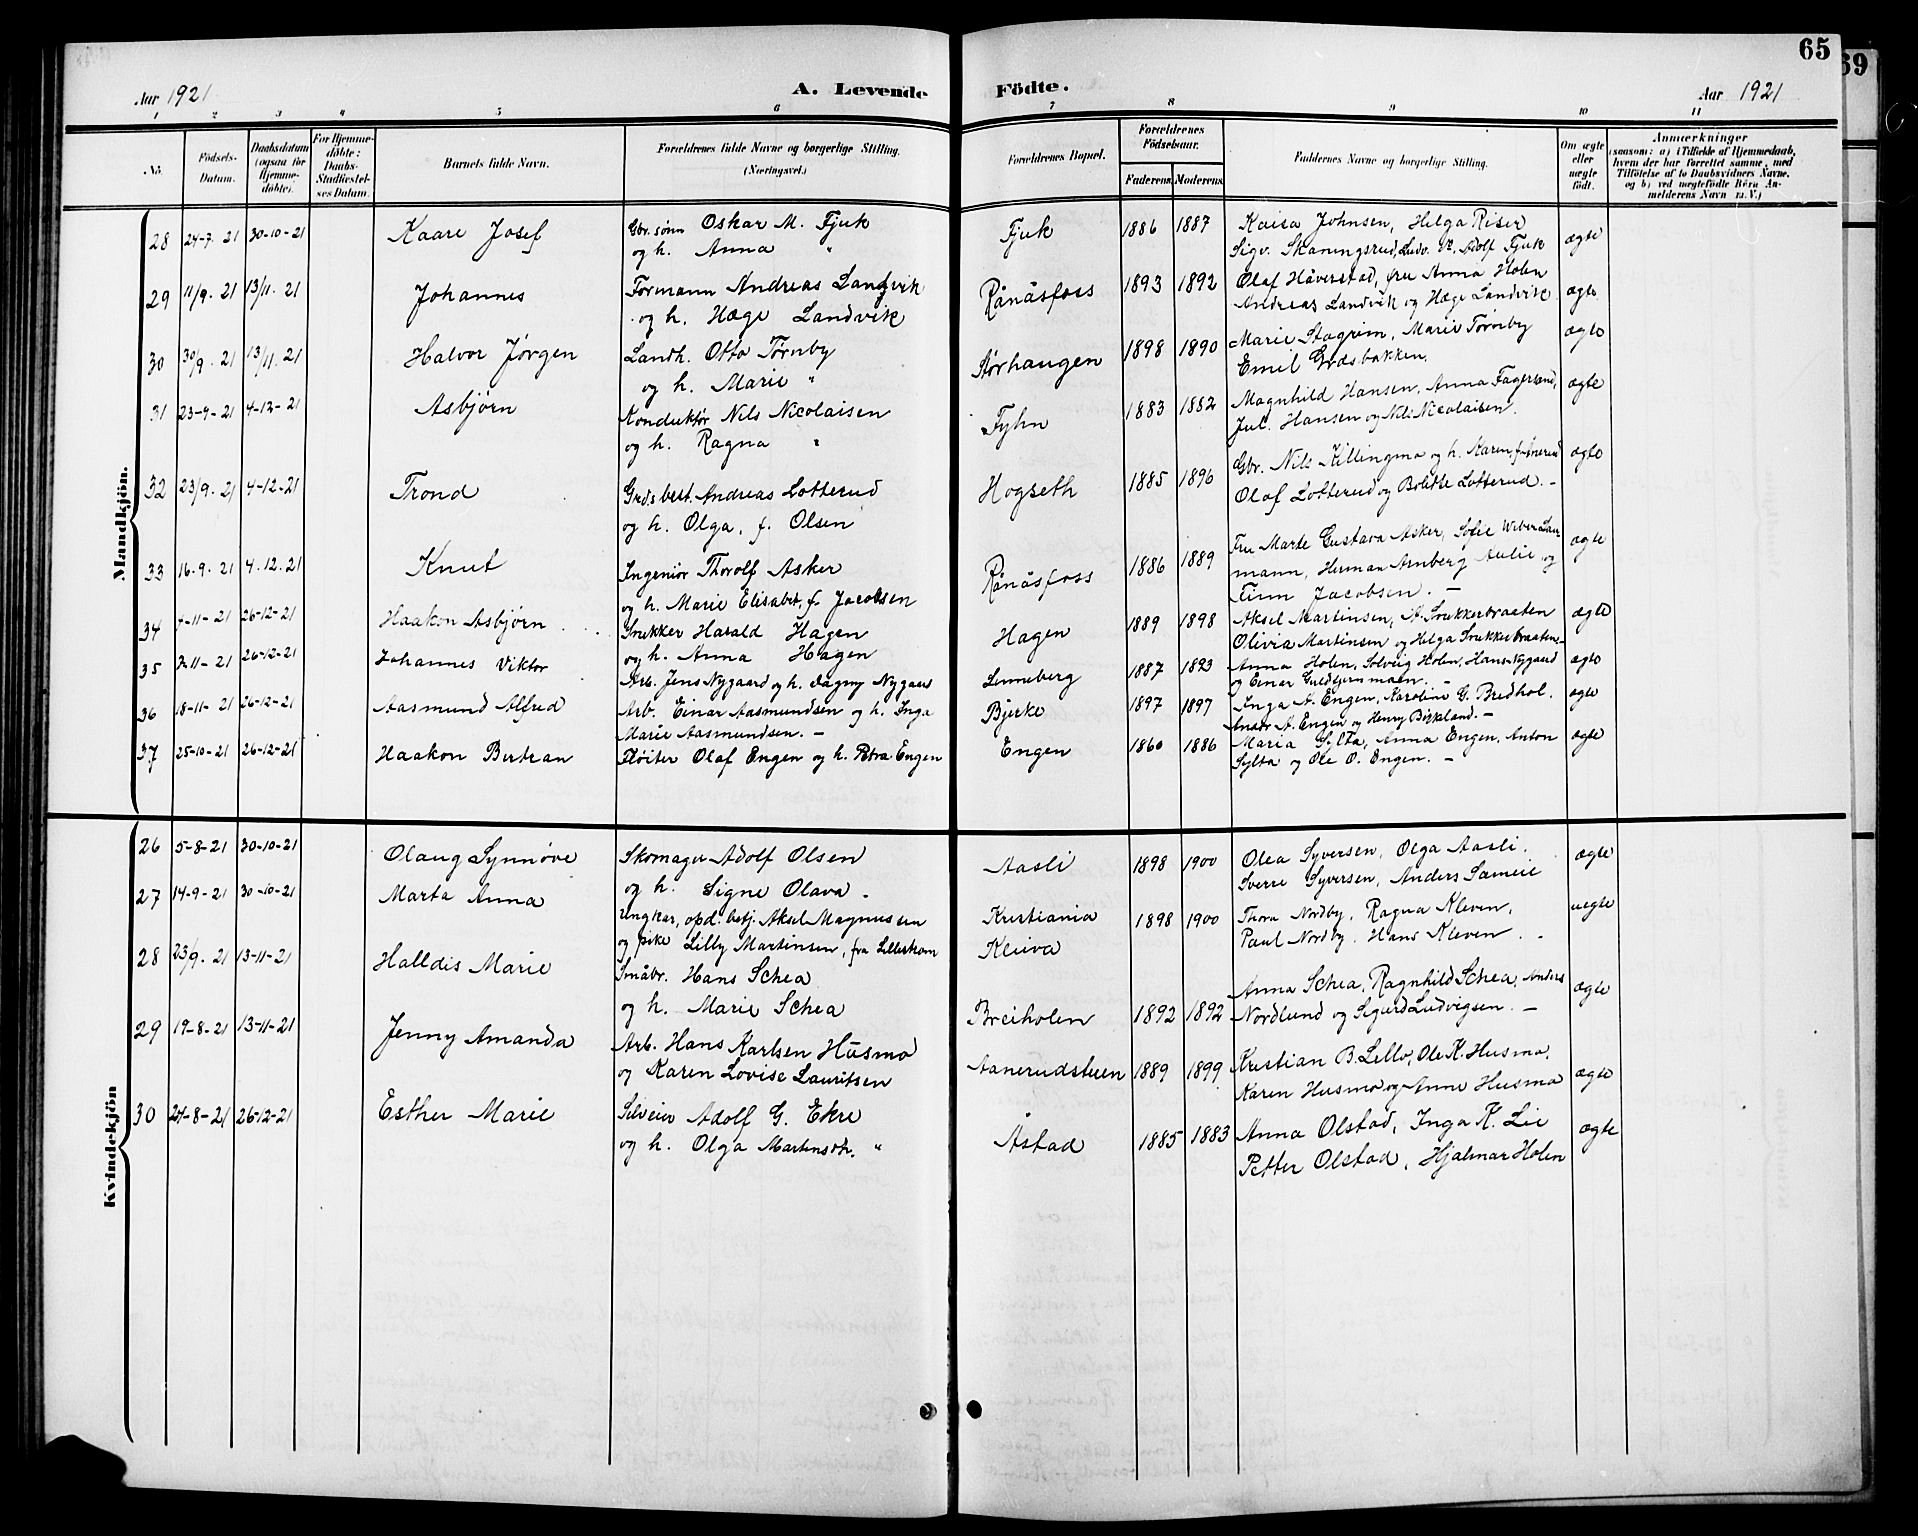 65
69
Aar 1921
A. Levende Födte.
Aar 1921
1 2 3 4 5 6 7 8 9 10 11
No.
Födsels-Datum.
Daabsdatum (ogsaa for Hjemmedöbte).
For Hjemmedöbte: Daabs-Stadfæstelses Datum.
Barnets fulde Navn.
Forældrenes fulde Navne og borgerlige Stilling. (Næringsvei.)
Forældrenes Bopæl.
Forældrenes Födselsaar.
Faderens.
Moderens.
Faddernes Navne og borgerlige Stilling.
Om ægte eller uægte födt.
Anmærkninger
(saasom: a) i Tilfælde af Hjemmedaab,
hvem der har forrettet samme, med
Tilföielse af to Daabsvidners Navne,
og b) ved uægtefödte Börn An-
melderens Navn m.V.)
Mandkjön.
28 24-7. 21 30-10-21 Kaare Josef Gbr. sønn Oskar M. Fjuk Fjuk 1886 1887 Kaisa Johnsen, Helga Riser ægte
og h. Anna " Sigv. Skaningsrud, Ludv. Adolf Fjuk
29 11/9. 21 13/11. 21 Johannes Formann Andreas Landvik Rånåsfoss 1893 1892 Olaf Håverstad, fru Anna Holen ægte
og h. Hæge Landvik Andreas Landvik og Hæge Landvik
30 30/9. 21 13/11. 21 Halvor Jørgen Landh. Otto Tørnby Størhaugen 1898 1890 Marie Stagrim, Marie Tørnby ægte
og h. Marie " Emil Grdsbakken.
31 23-9-21 4-12-21 Asbjørn Konduktør Nils Nicolaisen Fyhn 1883 1882 Magnhild Hansen, Anna Fagerland, ægte
og h. Ragna " Jul. Hansen og Nils Nicolaisen.
32 23/9. 21 4-12-21 Trond Grdsbest. Andreas Lotterud Hogseth 1885 1896 Gbr. Nils Killingmo og h. Karen, ægte
og h. Olga, f. Olsen Olaf Lotterud og Bolette Lotterud. -
33 16-9. 21 4.12.21 Knut Ingeniör Thorolf Asker Rånåsfoss 1886 1889 Fru Marte Gustava Asker, Sofie Weber Lau- ægte
og h. Marie Elisabet, f. Jacobsen mann, Herman Arnberg Aulie og
Finn Jacobsen. -
34 4-11-21 26-12-21 Haakon Asbjørn Snekker Harald Hagen Hagen 1889 1898 Aksel Martinsen, A. Snekkerbraaten ægte
og h. Anna Hagen Olivia Martinsen og Helga Snekkerbraaten-
35 7-11-21 26-12-21 Johannes Viktor Arb. Jens Nygaard og h. Dagny Nygaard Lenneberg 1887 1893 Anna Holen, Solveig Holen, Hans Nygaard ægte
og Einar Guldbjørnmoen. -
36 18-11-21 26-12-21 Aasmund Alfred Arb. Einar Aasmundsen og h. Inga Bjerke 1897 1897 Inga A. Engen, Karoline G. Bredhol. ægte
Marie Aasmundsen. - Ansor A. Engen og Henry Birkland. -
37 25-10-21 26-12-21 Haakon Bertran Fløiter Olaf Engen og h. Petra Engen Engen 1860 1886 Maria Sylta, Anna Engen, Anton ægte
Sylta og Ole O. Engen. -
Kvindekjön
26 5-8-21 30-10-21 Olaug Synnøve Skomager Adolf Olsen Aasli 1898 1900 Olea Syversen, Olga Aasli. ægte
og h. Signe Olava - Sverre Syversen, Anders Sameie
27 14-9-21 30-10-21 Marta Anna Ungkar, opd. betj. Aksel Magnussen Kristiania 1898 1900 Thora Nordby, Ragna Kleven, uegte
og pike Lilly Martinsen, fra Lillestrøm Kleiva Paul Nordby. Hans Kleven.
28 23/9. 21 13-11-21 Halldis Marie Småbr. Hans Schea Breiholen 1892 1892 Anna Schea, Ragnhild Schea, Anders ægte
og h. Marie Schea Nordlund og Sigurd Ludvigsen. -
29 19-8-21 13-11-21 Jenny Amanda Arb. Hans Karlsen Husmo Aanerudsteen 1889 1899 Kristian B. Lello, Ole K. Husmo, ægte
og Karen Lovise Lauritsen Karen Husmo og Anne Husmo
30 24-8-21 26-12-21 Esther Marie Sliveier Adolf G. Ekre Åstad 1885 1883 Anna Olstad, Inga K. Lie ægte
og h. Olga Martinsdtr. " Petter Olstad, Hjalmar Holen